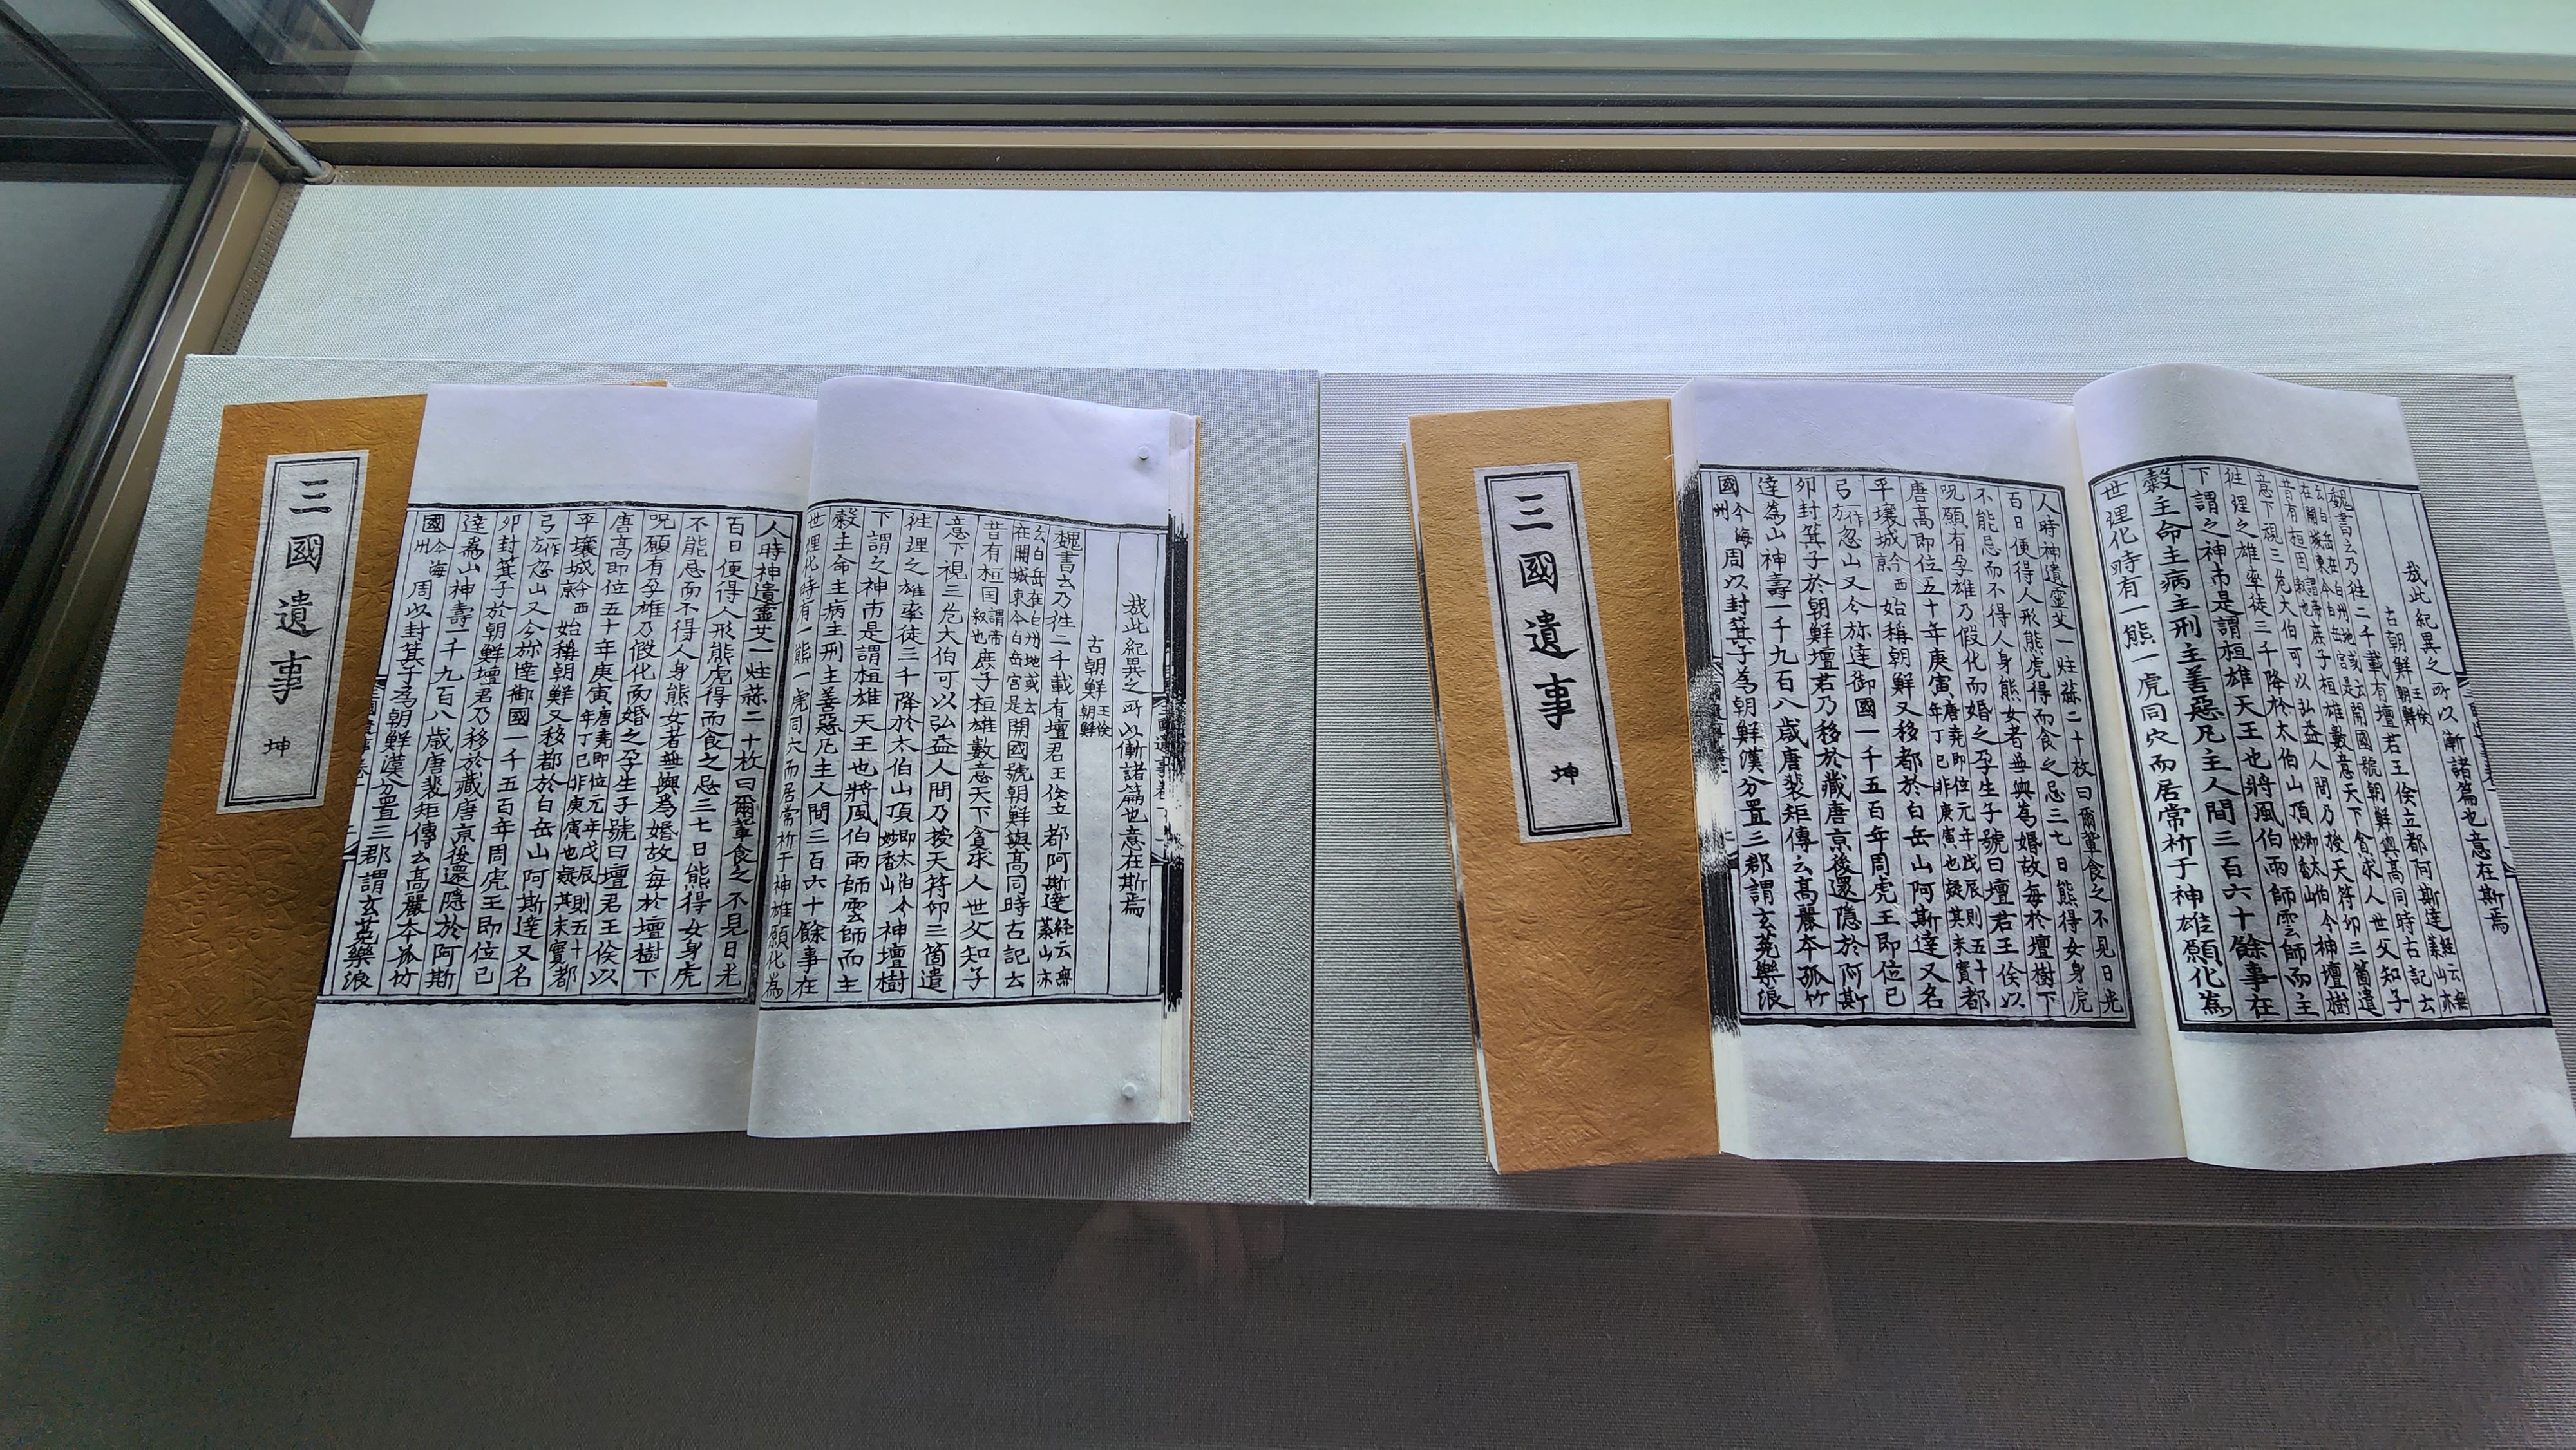 三國遺事 坤
哉此紀異之所以慚諸篇也意在斯焉
古朝鮮 王儉朝鮮
魏書云乃往二千載有壇君王儉立都阿斯達 經云無葉山亦
云白岳在白州地或云在開城東今白岳宮是 開國號朝鮮與高同時古記云
昔有桓囯 謂帝釈也 庶子桓雄數意天下貪求人世父知子
意下視三危太伯可以弘益人間乃授天符印三箇遣
徃理之雄率徒三千降於太伯山頂 即太伯今妙香山 神壇樹
下謂之神市是謂桓雄天王也將風伯雨師雲師而主
糓主命主病主刑主善惡凡主人間三百六十餘事在
世理化時有一熊一虎同穴而居常祈于神雄願化為
人時神遺靈艾一炷蒜二十枚曰爾輩食之不見日光
百日便得人形熊虎得而食之忌三七日熊得女身虎
不能忌而不得人身熊女者無與為婚故每於壇樹下
呪願有孕雄乃假化而婚之孕生子號曰壇君王儉以
唐高即位五十年庚寅 唐堯即位元年戊辰則五十年丁巳非庚寅也疑其未實 都
平壤城 今西京 始稱朝鮮又移都於白岳山阿斯達又名
弓 一作方 忽山又今旀達御國一千五百年周虎王即位己
卯封箕子於朝鮮壇君乃移於藏唐京後還隱於阿斯
達為山神壽一千九百八歲唐裴矩傳云高麗本孤竹
國 今海州 周以封箕子為朝鮮漢分置三郡謂玄菟樂浪
三國遺事 坤
哉此紀異之所以慚諸篇也意在斯焉
古朝鮮 王儉朝鮮
魏書云乃往二千載有壇君王儉立都阿斯達 經云無葉山亦
云白岳在白州地或云在開城東今白岳宮是 開國號朝鮮與高同時古記云
昔有桓囯 謂帝釈也 庶子桓雄數意天下貪求人世父知子
意下視三危太伯可以弘益人間乃授天符印三箇遣
徃理之雄率徒三千降於太伯山頂 即太伯今妙香山 神壇樹
下謂之神市是謂桓雄天王也將風伯雨師雲師而主
糓主命主病主刑主善惡凡主人間三百六十餘事在
世理化時有一熊一虎同穴而居常祈于神雄願化為
人時神遺靈艾一炷蒜二十枚曰爾輩食之不見日光
百日便得人形熊虎得而食之忌三七日熊得女身虎
不能忌而不得人身熊女者無與為婚故每於壇樹下
呪願有孕雄乃假化而婚之孕生子號曰壇君王儉以
唐高即位五十年庚寅 唐堯即位元年戊辰則五十年丁巳非庚寅也疑其未實 都
平壤城 今西京 始稱朝鮮又移都於白岳山阿斯達又名
弓 一作方 忽山又今旀達御國一千五百年周虎王即位己
卯封箕子於朝鮮壇君乃移於藏唐京後還隱於阿斯
達為山神壽一千九百八歲唐裴矩傳云高麗本孤竹
國 今海州 周以封箕子為朝鮮漢分置三郡謂玄菟樂浪